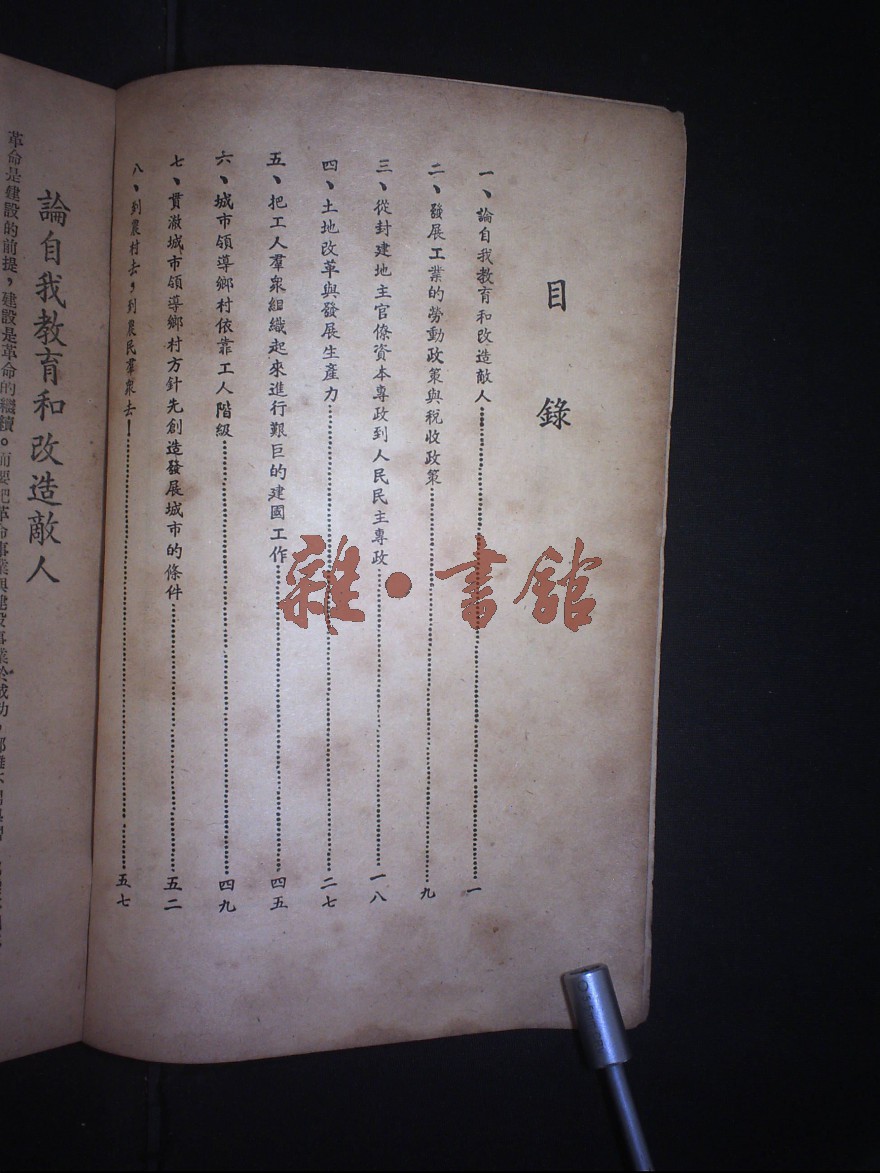 目錄
一、論自我教育和改造敵人………一
二、發展工業的勞動政策與稅收政策………九
三、從封建地主官僚資本專政到人民民主專政………一八
四、土地改革與發展生產力………二七
五、把工人羣衆組織起來進行艱巨的建國工作………四五
六、城市領導鄉村依靠工人階級………四九
七、貫澈城市領導鄉村方針先創造發展城市的條件………五二
八、到農村去，到農民羣衆去！………五七
雜·書館
論自我教育和改造敵人
革命是建設的前提，建設是革命的繼續。而要把革命事業與建設事業於成功，